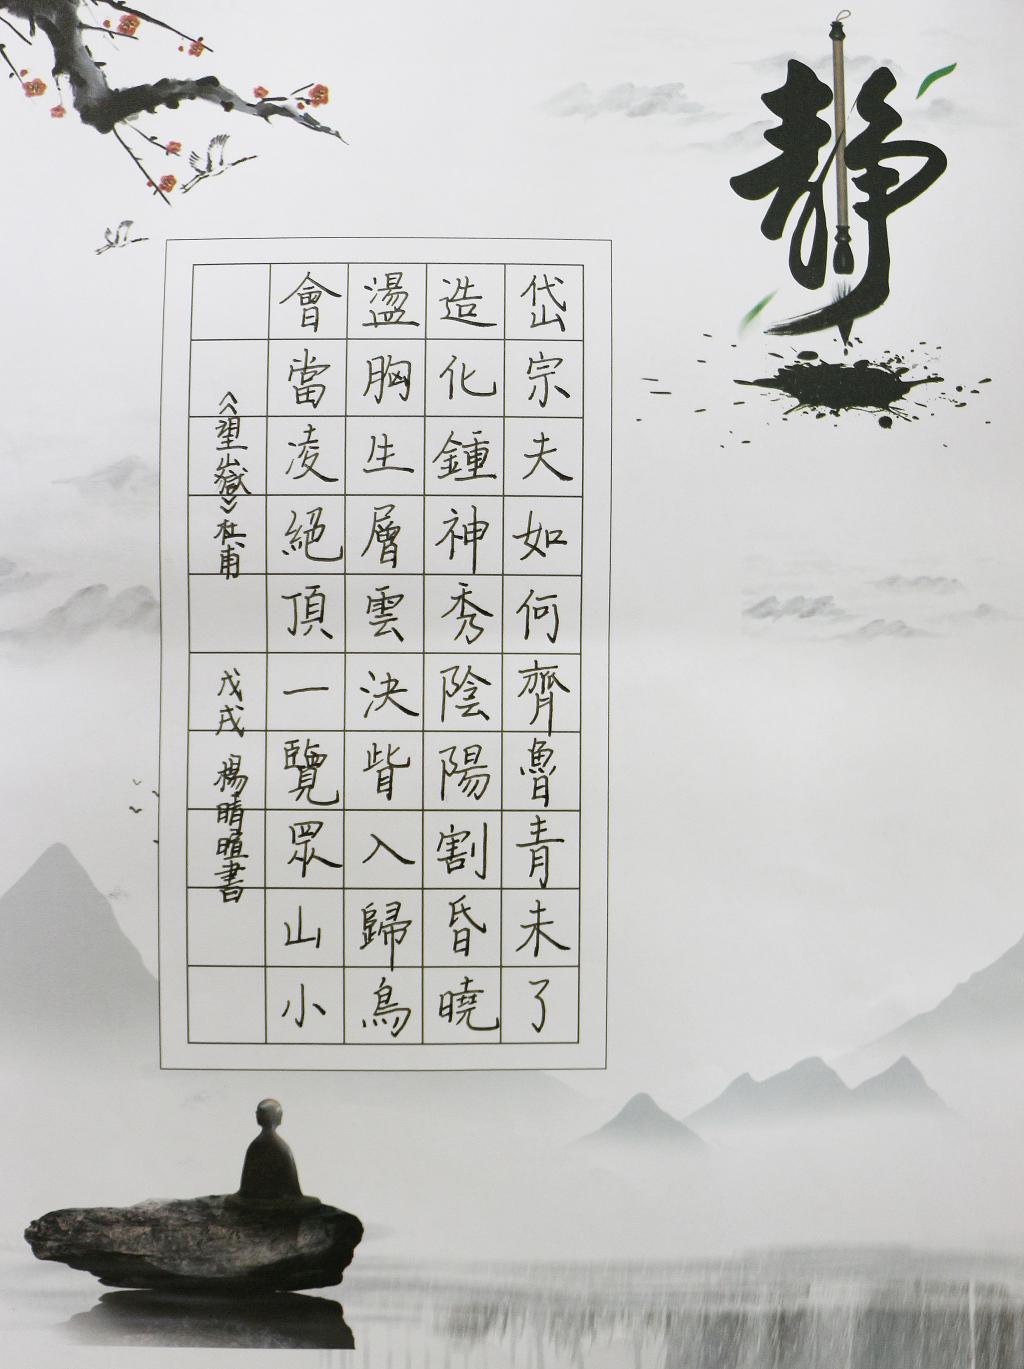 靜
岱宗夫如何齊魯青未了
造化鍾神秀陰陽割昏曉
盪胸生層雲決眥入歸鳥
會當凌絕頂一覽眾山小
《望嶽》杜甫 戊戌 楊晴暄書